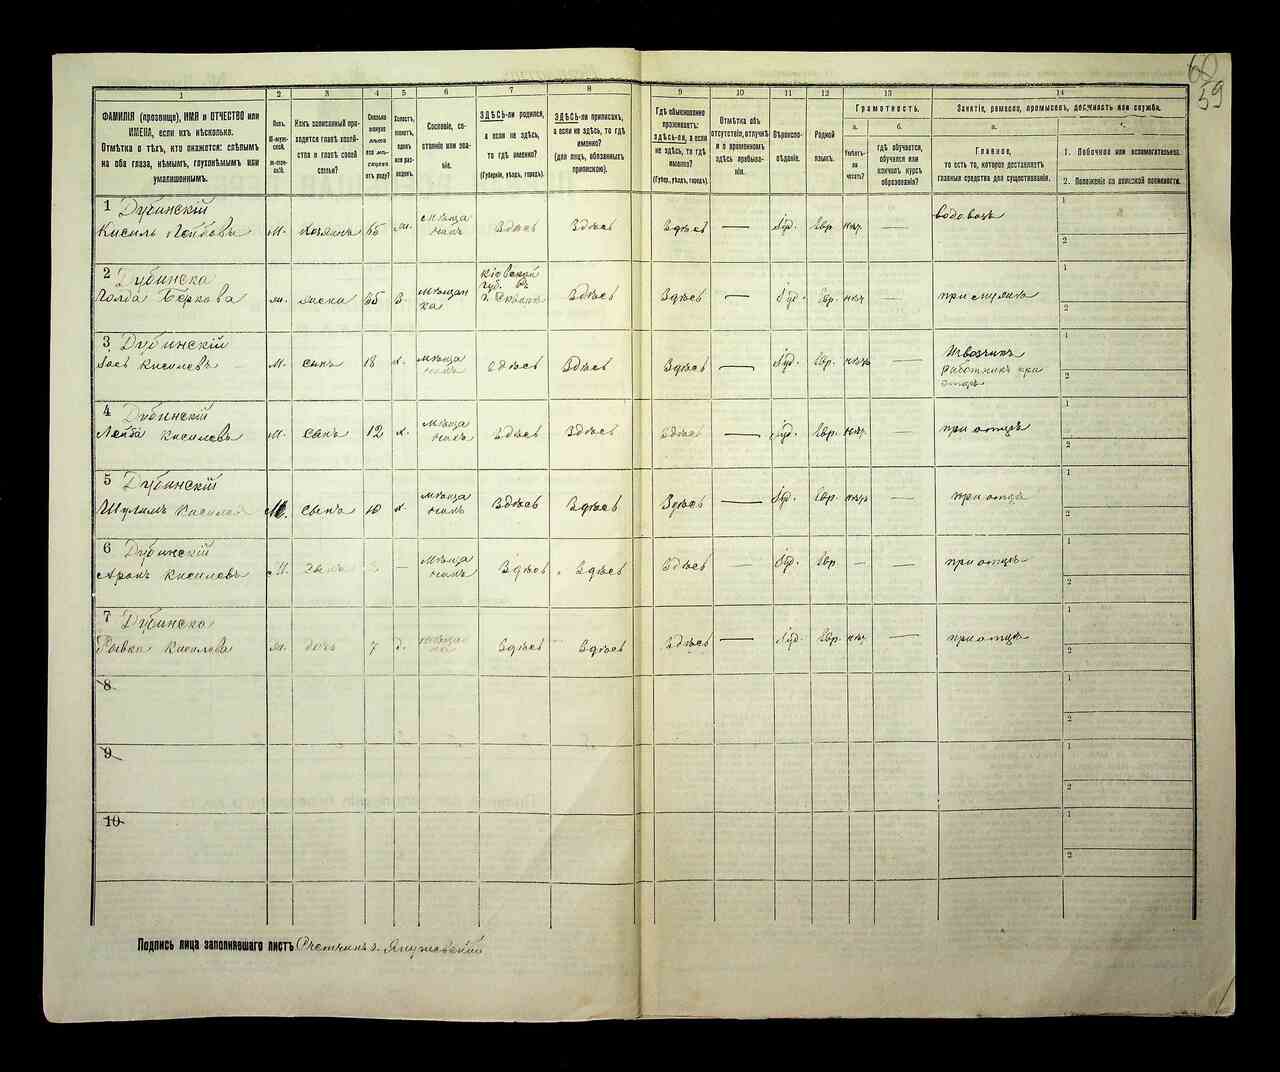 60
59
1
2
3
4
5
6
7
8
9
10
11
12
13
14
ФАМИЛІЯ (прозвище), ИМЯ и ОТЧЕСТВО или
ИМЕНА, если ихъ нѣсколько.
Отмѣтка о тѣхъ, кто окажется: слѣпымъ
на оба глаза, нѣмымъ, глухонѣмымъ или
умалишеннымъ.
Полъ.
М-муж-
ской.
Ж-жен-
скій.
Какъ записанный при-
ходится главѣ хозяй-
ства и главѣ своей
семьи?
Сколько
минуло
лѣтъ
или мѣ-
сяцевъ
отъ роду?
Холостъ,
женатъ,
вдовъ
или раз-
веденъ.
Сословіе, со-
стояніе или зва-
ніе.
ЗДѢСЬ-ли родился,
а если не здѣсь,
то гдѣ именно?
(Губернія, уѣздъ, городъ).
ЗДѢСЬ-ли приписанъ,
а если не здѣсь, то гдѣ
именно?
(для лицъ, обязанныхъ
припискою).
Гдѣ обыкновенно
проживаетъ:
ЗДѢСЬ-ли, а если
не здѣсь, то гдѣ
именно?
(Губер., уѣздъ, городъ).
Отмѣтка объ
отсутствіи, отлучкѣ
и о временномъ
здѣсь пребыва-
ніи.
Вѣроиспо-
вѣданіе.
Родной
языкъ.
Грамотность.
а.
б.
Умѣетъ-
ли
читать?
гдѣ обучается,
обучался или
кончилъ курсъ
образованія?
Занятіе, ремесло, промыселъ, должность или служба.
а.
Главное,
то есть то, которое доставляетъ
главныя средства для существованія.
1. Побочное или вспомогательное.
2. Положеніе по воинской повинности.
1 Дубинскій
Кисиль Лейбовъ
м. хозяинъ 65 ж. мѣща
нинъ Здѣсь Здѣсь Здѣсь — Іуд. Евр. нѣтъ — водовозъ
2 Дубинска
Голда Беркова
Кіевской
губ.
мѣщан
ка Здѣсь Здѣсь — Іуд. Евр. нѣтъ —
3 Дубинскій
Кисилевъ
м. сынъ 18 х. мѣща
нинъ Здѣсь Здѣсь Здѣсь — Іуд. Евр. нѣтъ — Извозчикъ
работникъ при
отцѣ
4 Дубинскій
Лейба Кисилевъ
м. сынъ 12 х. мѣща
нинъ Здѣсь Здѣсь Здѣсь — Іуд. Евр. нѣтъ — при отцѣ
5 Дубинскій
Шулимъ Кисилев
М. сынъ 10 х. мѣща
нинъ Здѣсь Здѣсь Здѣсь — Іуд. Евр. нѣтъ — при отцѣ
6 Дубинскій
Аронъ Кисилевъ
М. сынъ — мѣща
нинъ Здѣсь Здѣсь Здѣсь — Іуд. Евр. — — при отцѣ
7 Дубинска
Ривка Кисилева
дочь 7 д. мѣща
Здѣсь Здѣсь Здѣсь — Іуд. Евр. нѣтъ — при отцѣ
8
9
10
1
2
1
2
1
2
1
2
1
2
1
2
1
2
1
2
1
2
1
2
Подпись лица заполнявшаго листъ Счетчикъ